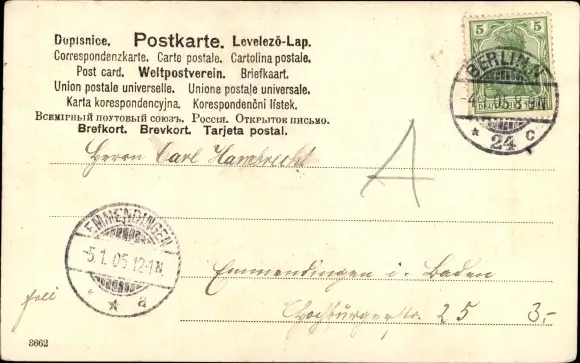 Dopisnice. Postkarte. Levelező-Lap.
Correspondenzkarte. Carte postale. Cartolina postale.
Post card. Weltpostverein. Briefkaart.
Union postale universelle. Unione postale universale.
Karta korespondencyjna. Korespondenční lístek.
Всемірный почтовый союзъ. Россія. Открытое письмо.
Brefkort. Brevkort. Tarjeta postal.
5 5
BERLIN.N.
-4.1.05.8-9N
* 24 c
Herrn Carl Hambrecht
A
EMMENDINGEN
-5.1.05.12-1N.
* * a
Emmendingen i. Baden
Hochburgerstr. 25 3.-
3662